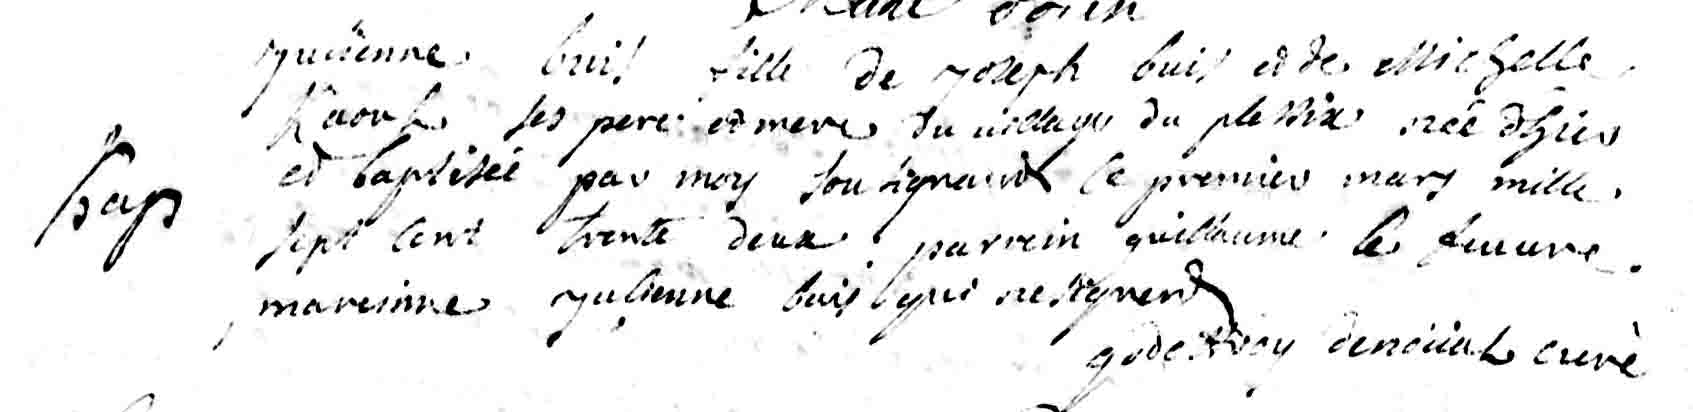 yulienne buis fille de yoseph buis et de Michelle
Raoul ses pere et mere du village du plessix née d'hier
bap
et baptisée par moy sousignant le premier mars mille
sept cent trente deux parrein guillaume le feuvre.
mareinne yulienne buis qui ne signent
godefroy curé